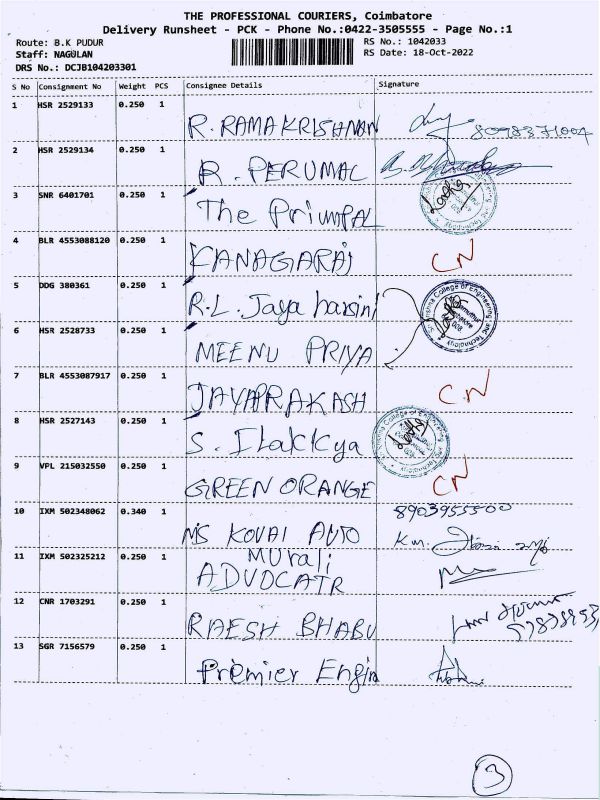 THE PROFESSIONAL COURIERS, Coimbatore
Delivery Runsheet - PCK - Phone No.:0422-3505555 - Page No.:1
Route: B.K PUDUR
RS No.: 1042033
Staff: NAGULAN
RS Date: 18-Oct-2022
DRS No.: DCJB104203301
S No Consignment No Weight PCS Consignee Details Signature
1 HSR 2529133 0.250 1
R. RAMAKRISHNAN 8098371004
2 HSR 2529134 0.250 1
R. PERUMAL
3 SNR 6401701 0.250 1
The Priumpal
4 BLR 4553088120 0.250 1
KANAGARAJ CN
5 DDG 380361 0.250 1
R.L. Jaya harsini
6 HSR 2528733 0.250 1
MEENU PRIYA
College of Engineering and Technology
7 BLR 4553087917 0.250 1
JAYAPRAKASH CN
8 HSR 2527143 0.250 1
S. Ilakkya
College of Engineering and Technology
9 VPL 215032550 0.250 1
GREEN ORANGE CN
10 IXM 502348062 0.340 1 8903955500
M/S KOVAI AUTO
11 IXM 502325212 0.250 1
Murali
ADVOCATR
12 CNR 1703291 0.250 1
RAESH BHABU
13 SGR 7156579 0.250 1
Premier Engin
3